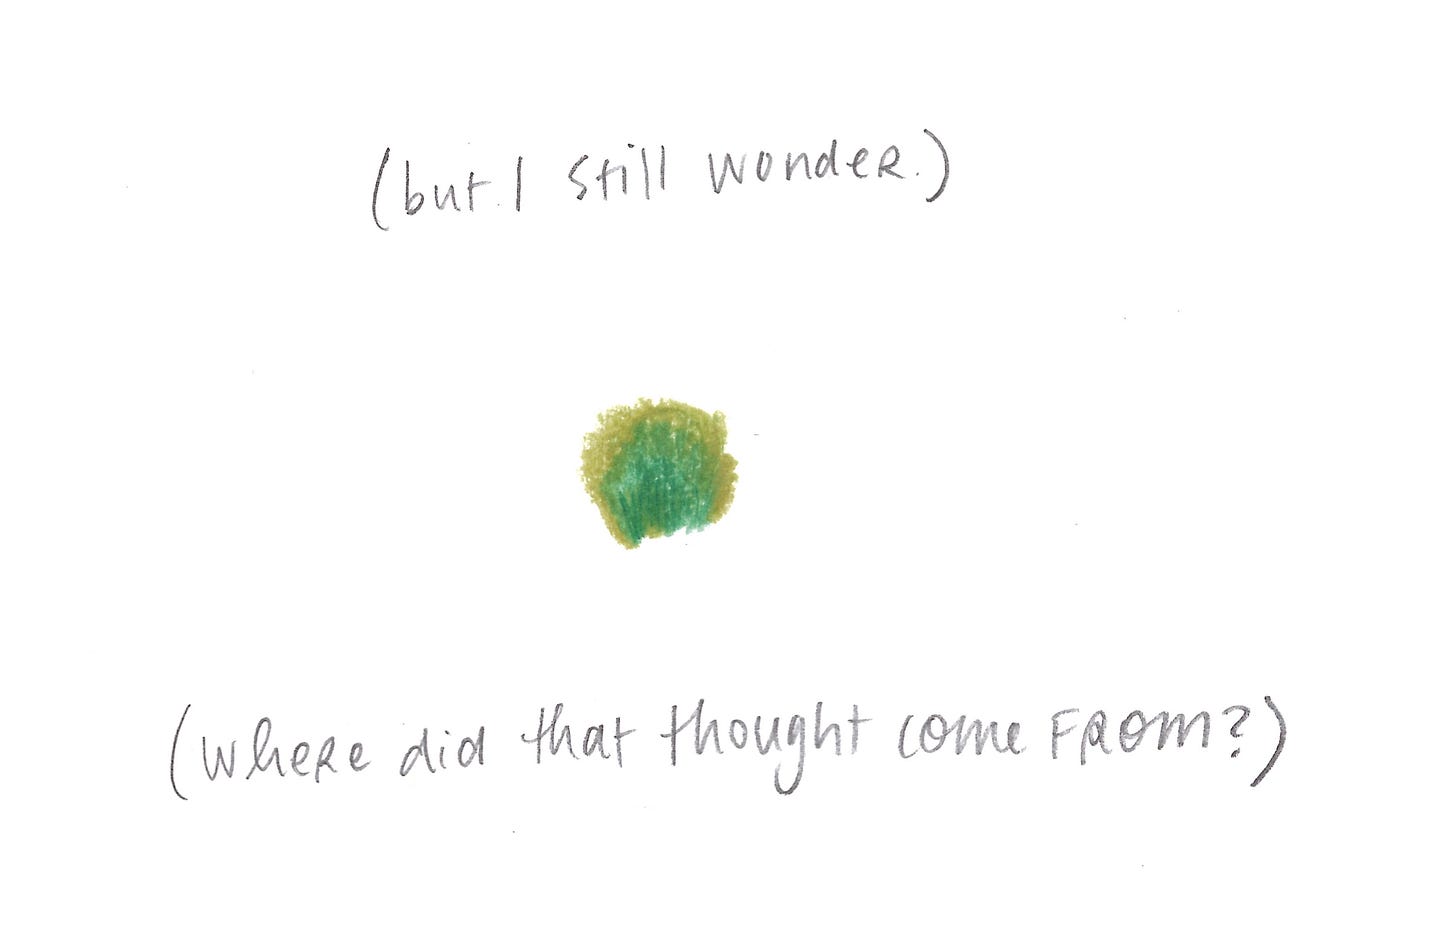 (but I still wonder.)
(where did that thought come from?)